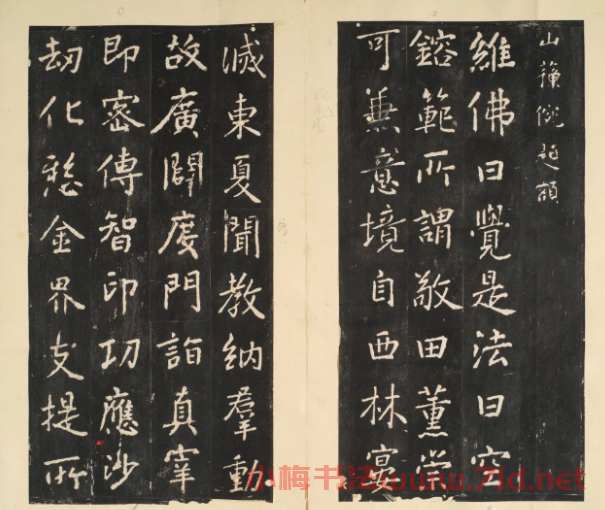 山
維佛曰覺是法曰空
鎔範所謂敬田薰
可意境自西林宴
滅東夏聞教納羣動
故廣闢度門詣真宰
即密傳智印功應沙
劫化慈金界支提所
小梅书法www.7ld.net